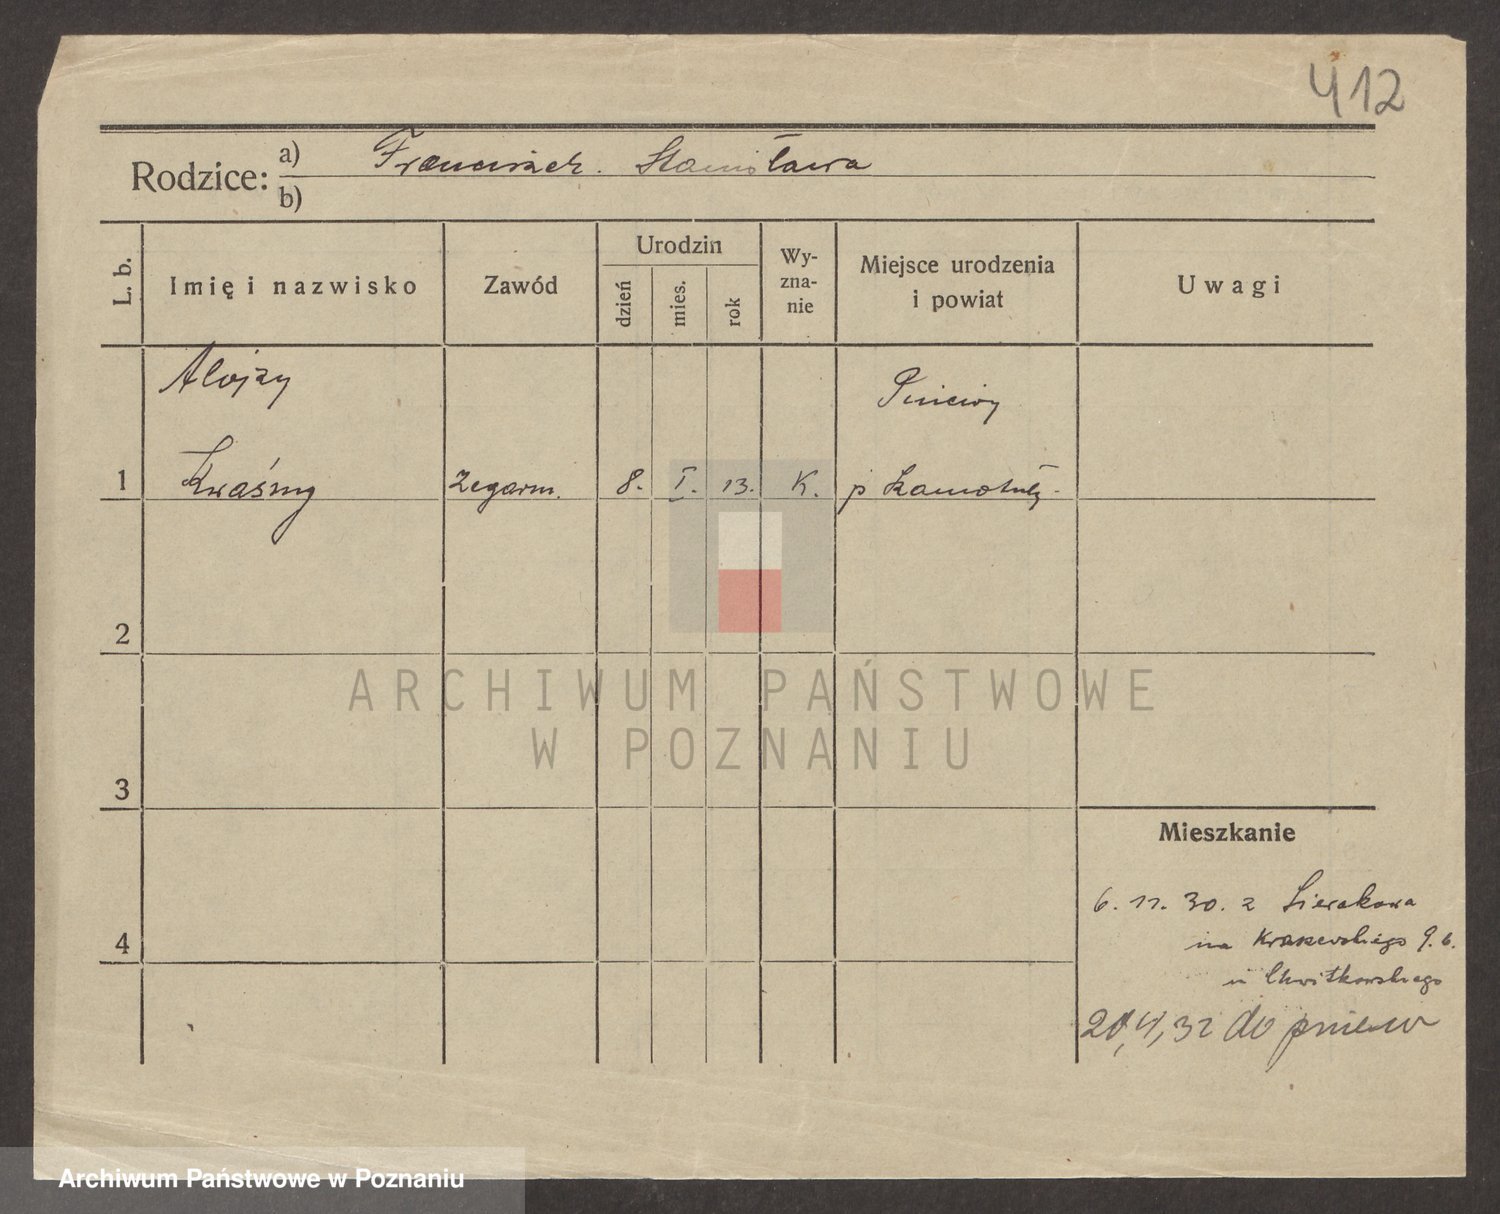 412
Rodzice: a) Franciszek. Stanisława
b)
L. b.
Imię i nazwisko
Zawód
Urodzin
dzień
mies.
rok
Wy-
zna-
nie
Miejsce urodzenia
i powiat
Uwagi
Alojzy
Pniewy
1 Kraśny zegarm. 8. I. 13. K. p Szamotuły.
2
ARCHIWUM PAŃSTWOWE
W POZNANIU
3
Mieszkanie
6. 11. 30. z Sierakowa
na Kraszewskiego 9. b.
4
u Chwitkowskiego
20,4,32 do pniew
Archiwum Państwowe w Poznaniu